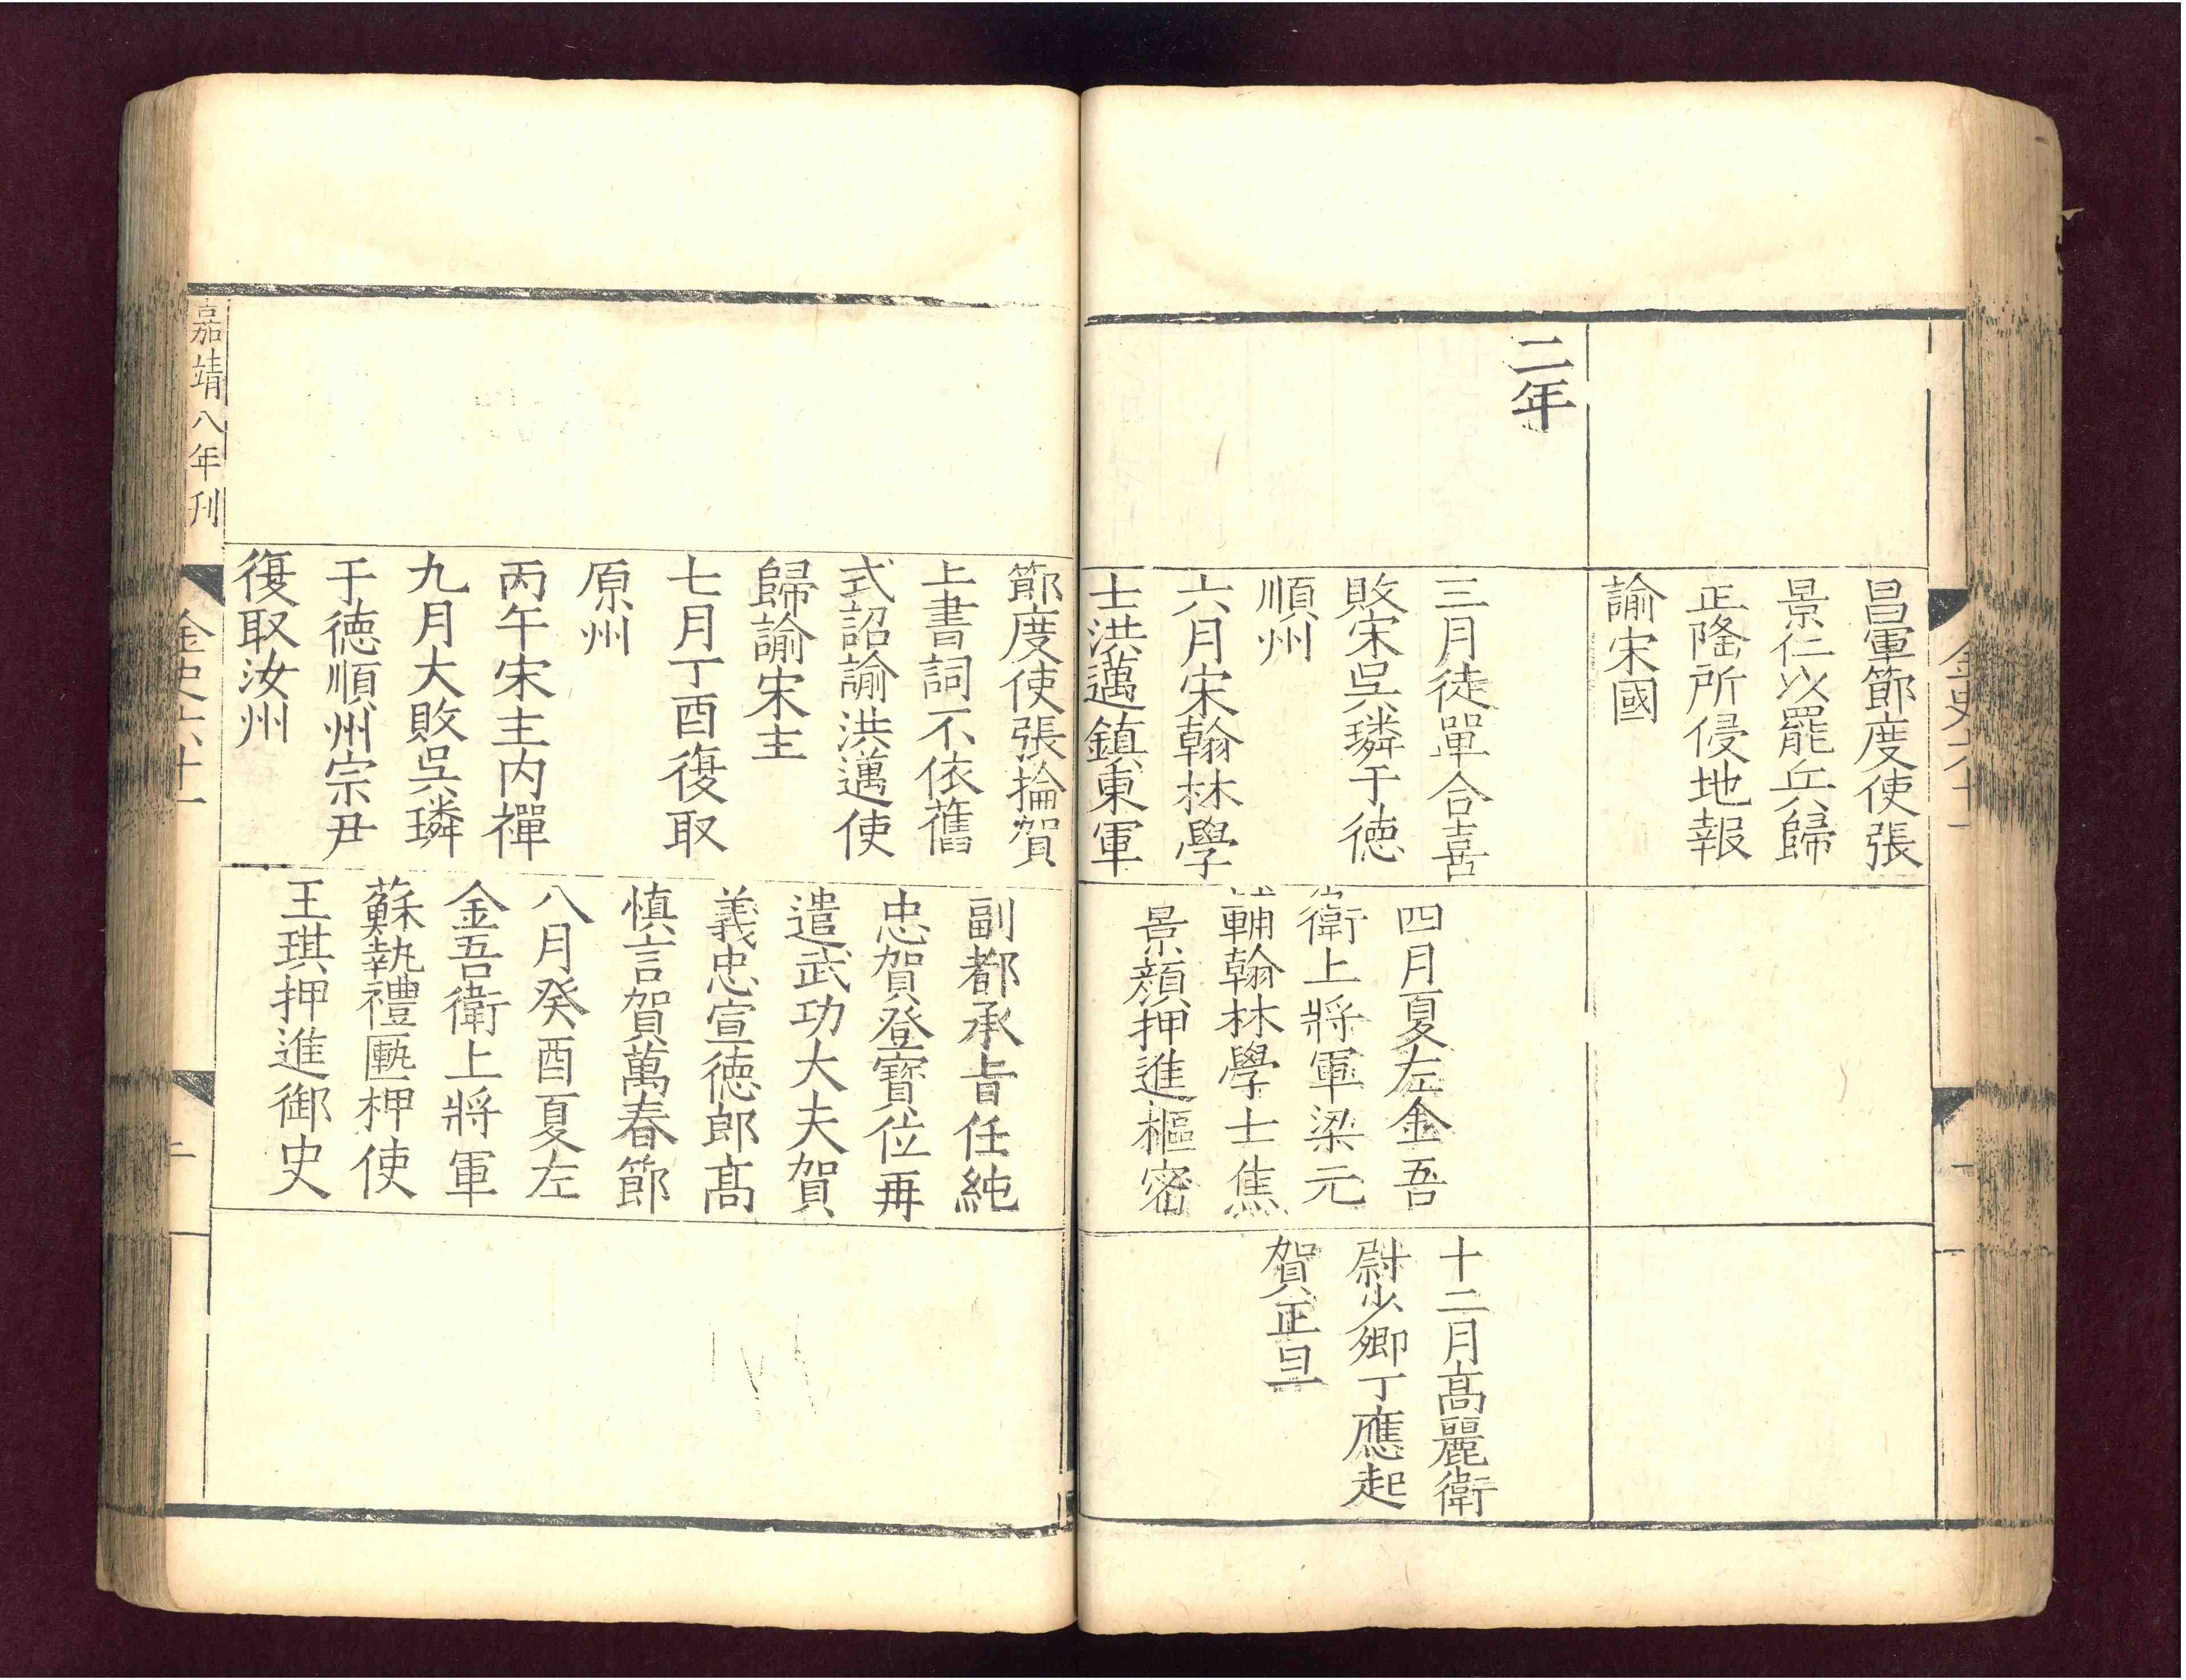 金史六十一
一
昌軍節度使張
景仁以罷兵歸
正隆所侵地報
諭宋國
二年
三月徒單合喜
敗宋吳璘于德
順州
六月宋翰林學
士洪邁鎮東軍
四月夏左金吾
衛上將軍梁元
輔翰林學士焦
景顏押進樞密
十二月高麗衛
尉少卿丁應起
賀正旦
節度使張掄賀
上書詞不依舊
式詔諭洪邁使
歸諭宋主
七月丁酉復取
原州
丙午宋主内禪
九月大敗吳璘
于德順州宗尹
復取汝州
副都承旨任純
忠賀登寶位再
遣武功大夫賀
義忠宣德郎高
慎言賀萬春節
八月癸酉夏左
金吾衛上將軍
蘇執禮匭押使
王琪押進御史
嘉靖八年刊
金史六十一
二